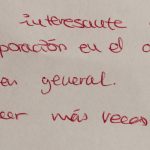 interesante
poración en el
en general.
cer más veces